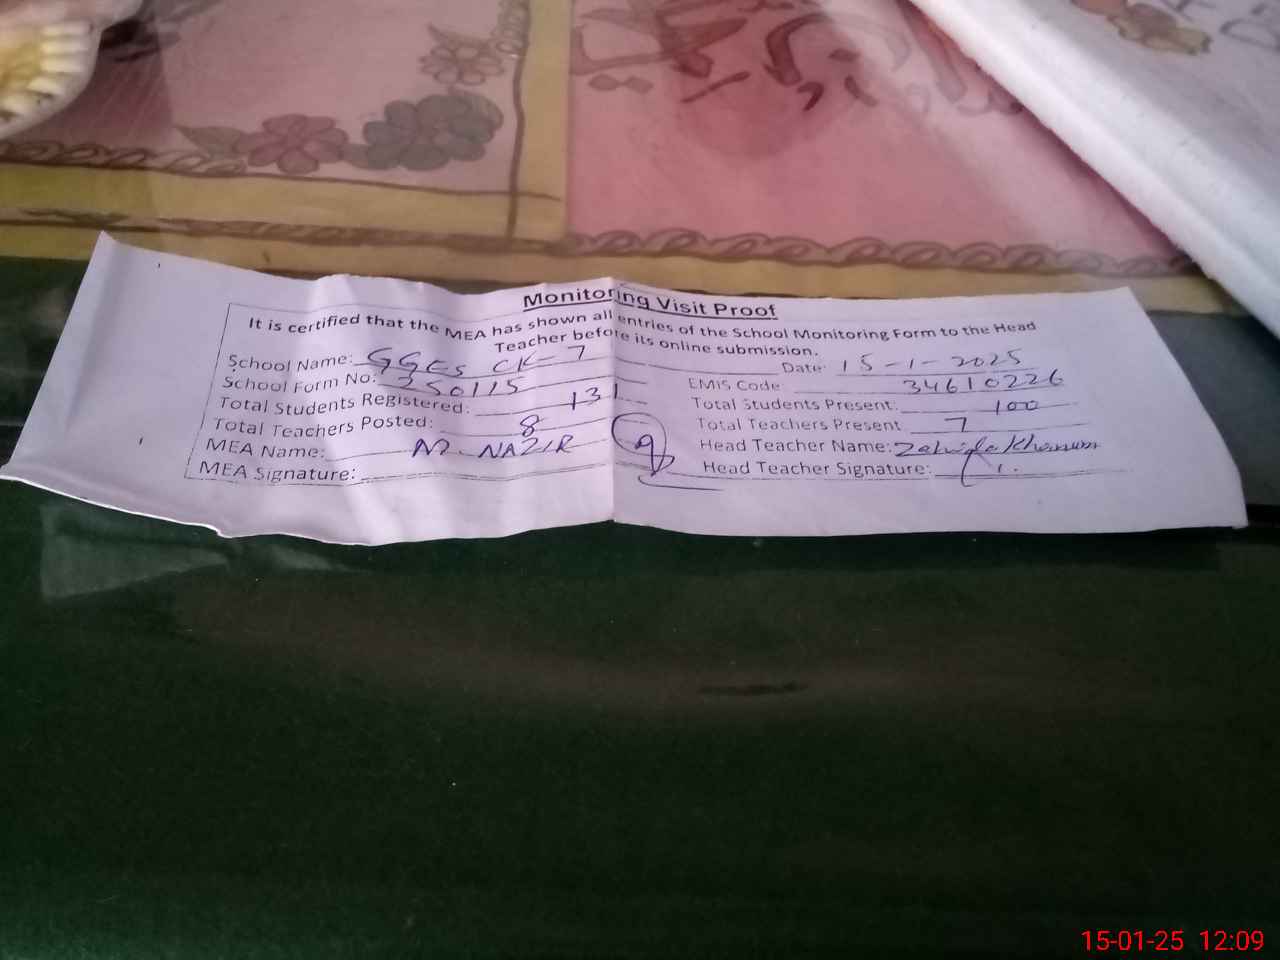 Monitoring Visit Proof
It is certified that the MEA has shown all entries of the School Monitoring Form to the Head
Teacher before its online submission.
School Name: GGES CK-7 Date: 15-1-2025
School Form No: 250115 EMIS Code 34610226
Total Students Registered: 131 Total Students Present: 100
Total Teachers Posted: 8 Total Teachers Present 7
MEA Name: M. NAZIR Head Teacher Name: Zahida Khanum
MEA Signature: Head Teacher Signature:
15-01-25 12:09